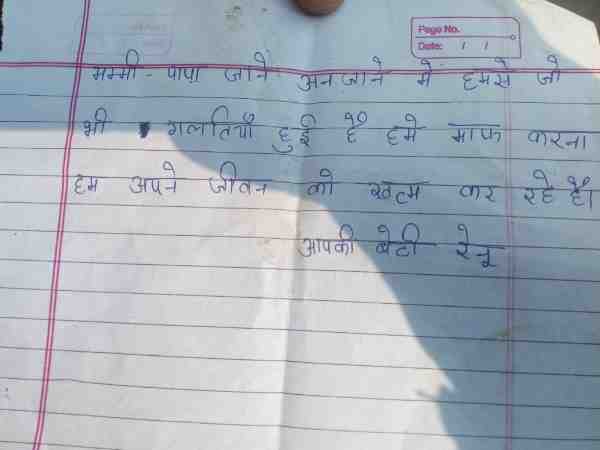 Page No.
Date: / /
मम्मी - पापा जाने अनजाने मे हमसे जो
भी गलतियाँ हुई है हमे माफ करना
हम अपने जीवन को खत्म कर रहे हैं।
आपकी बेटी रेनू